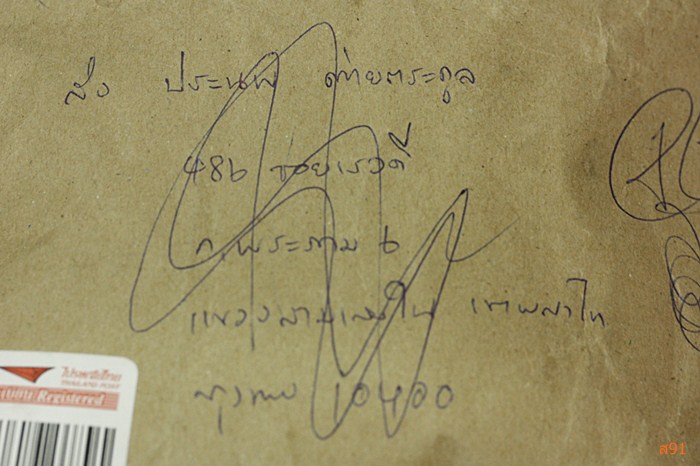 ส่ง ประนพ ตระกูล
486 ซอยเรวดี
ถ.พระราม 6
แขวงสามเสนใน เขตพญาไท
กรุงเทพ 10400
ไปรษณีย์ไทย
THAILAND POST
Registered
ส91